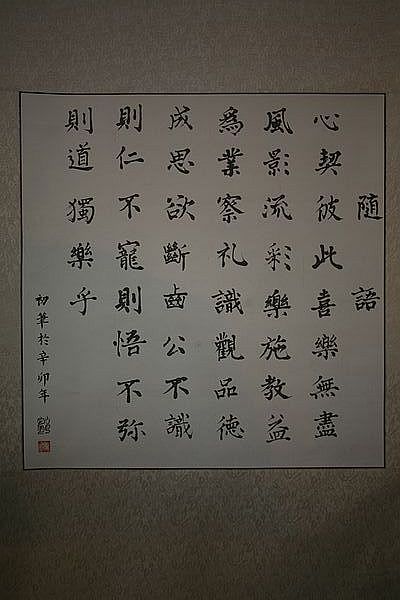 隨語
心契彼此喜樂無盡
風影流彩樂施教益
爲業察礼識觀品德
成思欲斷齒公不識
則仁不寵則悟不弥
則道獨樂乎
初筆於辛卯年